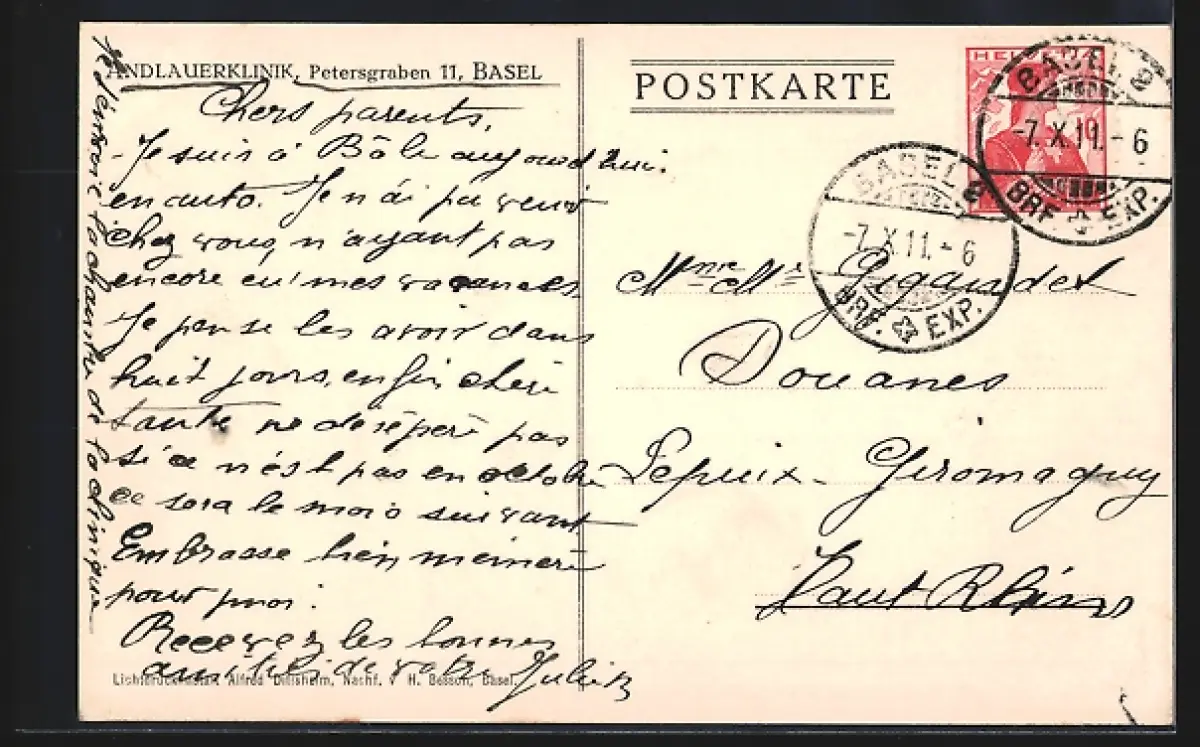 ANDLAUERKLINIK, Petersgraben 11, BASEL
Chers parents,
Je suis à Bâle aujourd'hui.
en auto. Je n'ai pu venir
chez vous, n'ayant pas
encore eu mes vacances
Je pense les avoir dans
huit jours, enfin chère
tante ne désépère pas
si ce n'est pas en octobre
ce sera le mois suivant
Embrasse bien mémère
pour moi.
Recevez les bonnes
amitiés de votre
Lichtdruckanstalt Alfred Ditisheim, Nachf. v H. Besson, Basel.
la chambre de la clinique
POSTKARTE
HELVETIA
BASEL 2
-7.X.11.-6
BRF. EXP.
BASEL 2
-7.X.11.-6
BRF. EXP.
Mme Mr Gigandet
Douanes
Lepuix - Giromagny
Haut Rhin